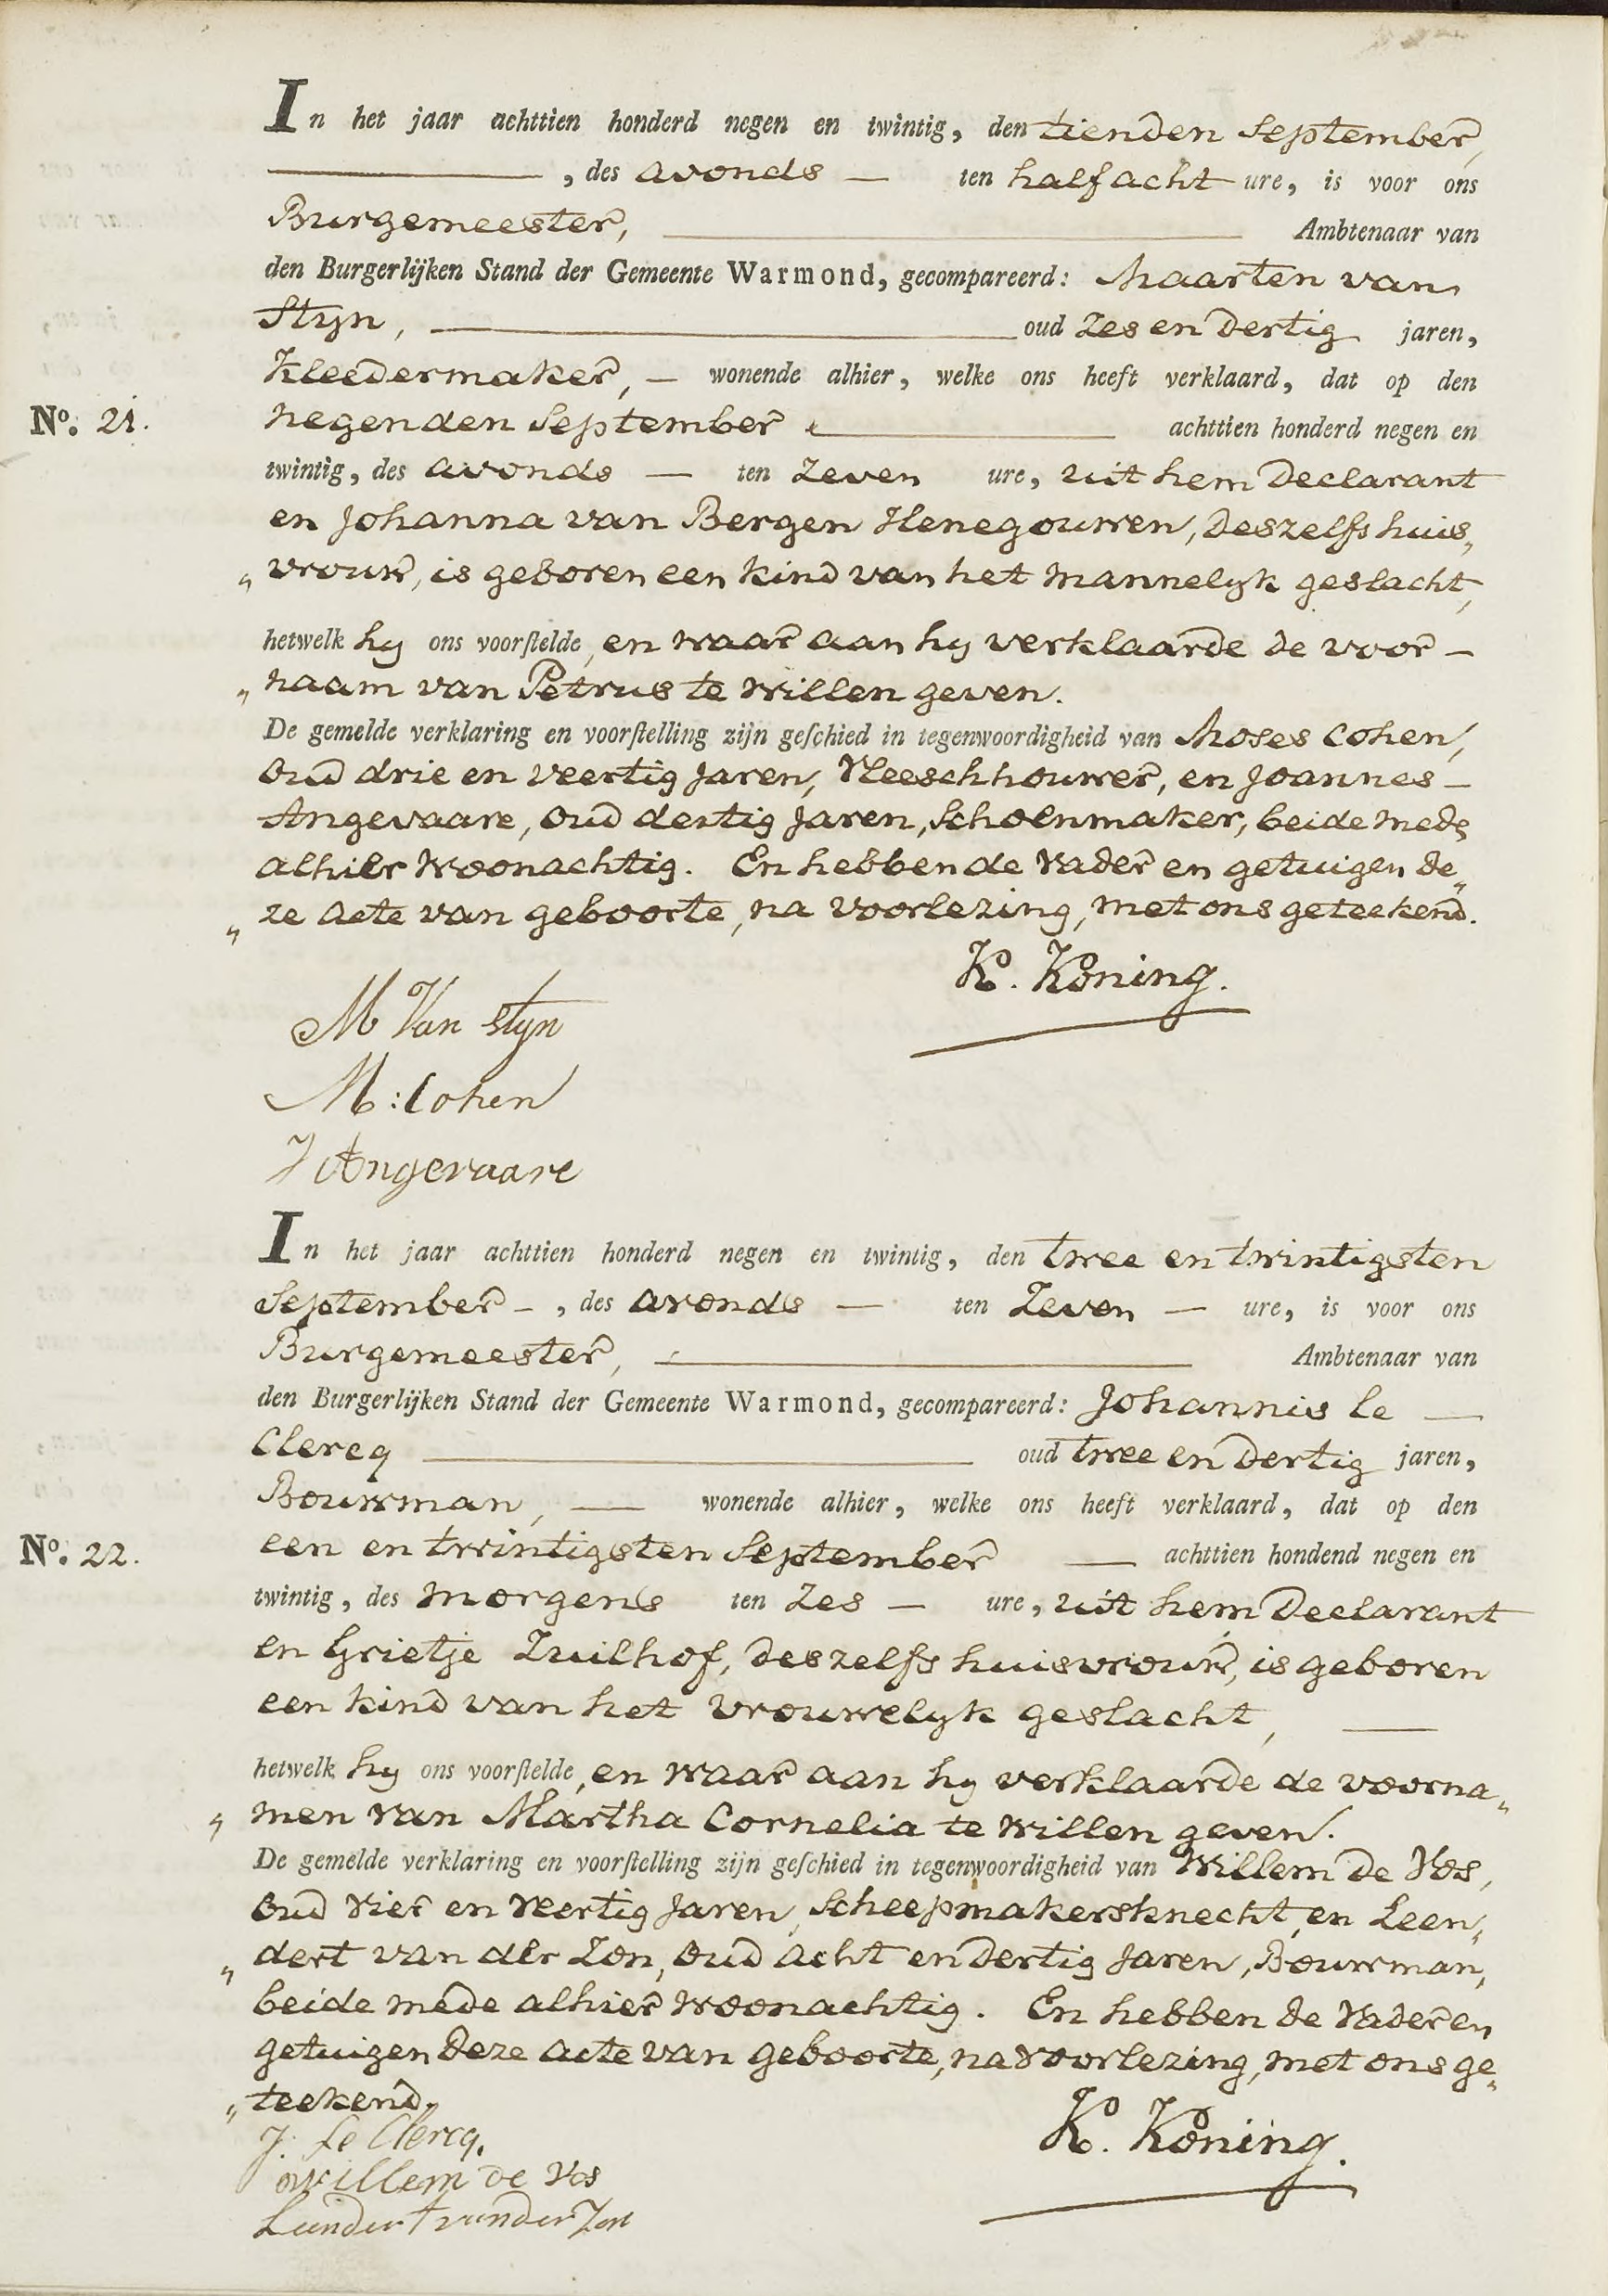 In het jaar achttien honderd negen en twintig, den tienden September,
, des avonds — ten half acht ure, is voor ons
Burgemeester, Ambtenaar van
den Burgerlijken Stand der Gemeente Warmond, gecompareerd: Maarten van
Styn, oud Zes en Dertig jaren,
Kleedermaker, — wonende alhier, welke ons heeft verklaard, dat op den
No. 21. negenden September achttien honderd negen en
twintig, des avonds — ten Zeven ure, uit hem Declarant
en Johanna van Bergen Henegouwen, Deszelfs huis„
„vrouw, is geboren een kind van het mannelyk geslacht,
hetwelk hy ons voorstelde, en waar aan hy verklaarde de voor-
„naam van Petrus te willen geven.
De gemelde verklaring en voorstelling zijn geschied in tegenwoordigheid van Moses Cohen,
Oud drie en veertig Jaren, Vleeschhouwer, en Joannes -
Angevaare, Oud dertig Jaren, Schoenmaker, beide mede
alhier Woonachtig. En hebben de Vader en getuigen de„
„ze acte van geboorte, na voorlezing, met ons geteekend.
K. Koning.
M Van Styn
M: Cohen
J Angevaare
In het jaar achttien honderd negen en twintig, den twee en twintigsten
September -, des avonds — ten Zeven — ure, is voor ons
Burgemeester, Ambtenaar van
den Burgerlijken Stand der Gemeente Warmond, gecompareerd: Johannis le —
Clercq oud twee en Dertig jaren,
Bouwman, — wonende alhier, welke ons heeft verklaard, dat op den
No. 22. een en twintigsten September — achttien hondend negen en
twintig, des morgens ten Zes — ure, uit hem Declarant
en Grietje Zuilhof, deszelfs huisvrouw, is geboren
een kind van het vrouwelyk geslacht, —
hetwelk hy ons voorstelde, en waar aan hy verklaarde de voorna„
„men van Martha Cornelia te willen geven.
De gemelde verklaring en voorstelling zijn geschied in tegenwoordigheid van Willem de Vos,
Oud vier en Veertig Jaren, Scheepmakersknecht, en Leen„
„dert van der Zon, Oud acht en Dertig Jaren, Bouwman,
beide mede alhier woonachtig. En hebben de Vader en
getuigen Deze acte van geboorte, na voorlezing, met ons ge„
„teekend.
K. Koning.
J. le Clercq.
Willem de Vos
Leendert vander Zon